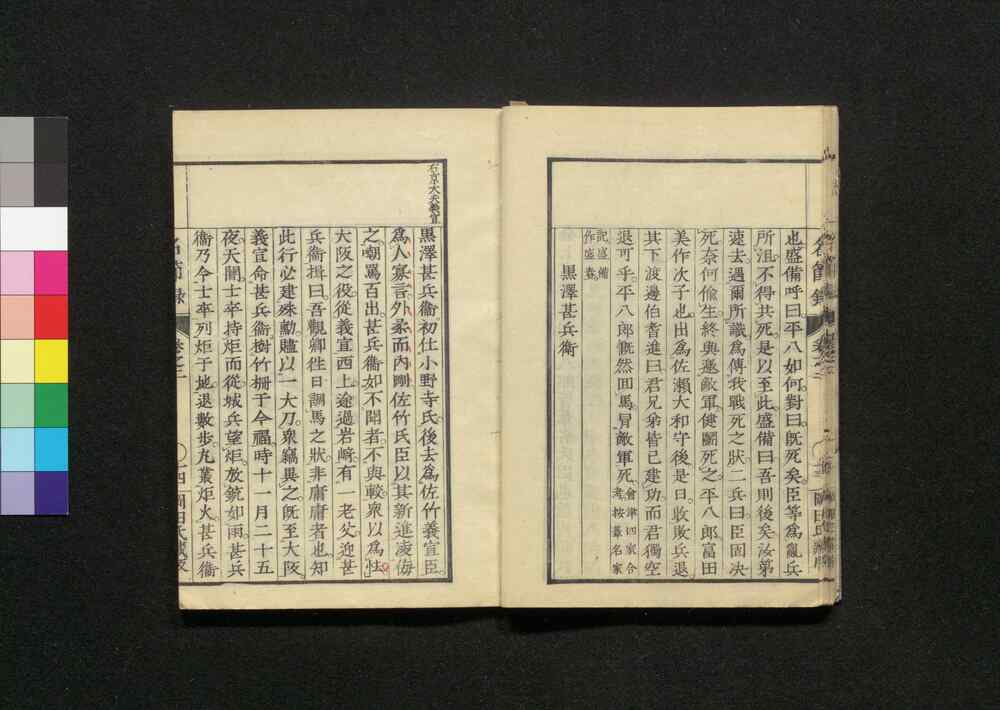 也盛備呼曰平八如何對曰既死矣臣等為亂兵
所沮不得共死是以至此盛備曰吾則後矣汝第
速去過爾所識為傳我戰死之狀二兵曰臣固决
死奈何偷生終與遮敵軍健鬬死之平八郎富田
美作次子也出為佐瀨大和守後是日收敗兵退
其下渡邊伯耆進曰君兄弟皆已建功而君獨空
退可乎平八郎慨然回馬冒敵軍死會津四家合
考按蓋名家
記盛備
作盛秦
黑澤甚兵衞
右京大夫義宣
黑澤甚兵衞初仕小野寺氏後去為佐竹義宣臣
為人寡言外柔而內剛佐竹氏臣以其新進凌侮
之嘲罵百出甚兵衞如不聞者不與較衆以為怯
大阪之役從義宣西上途過岩﨑有一老父迎甚
兵衞揖曰吾觀卿徃日調馬之狀非庸庸者也知
此行必建殊勳贐以一大刀衆竊異之既至大阪
義宣命甚兵衞樹竹柵于今福時十一月二十五
夜天闇士卒持炬而從城兵望炬放銃如雨甚兵
衞乃令士卒列炬于地退數步丸叢炬火甚兵衞
名節錄
卷之二
四
岡田氏藏板